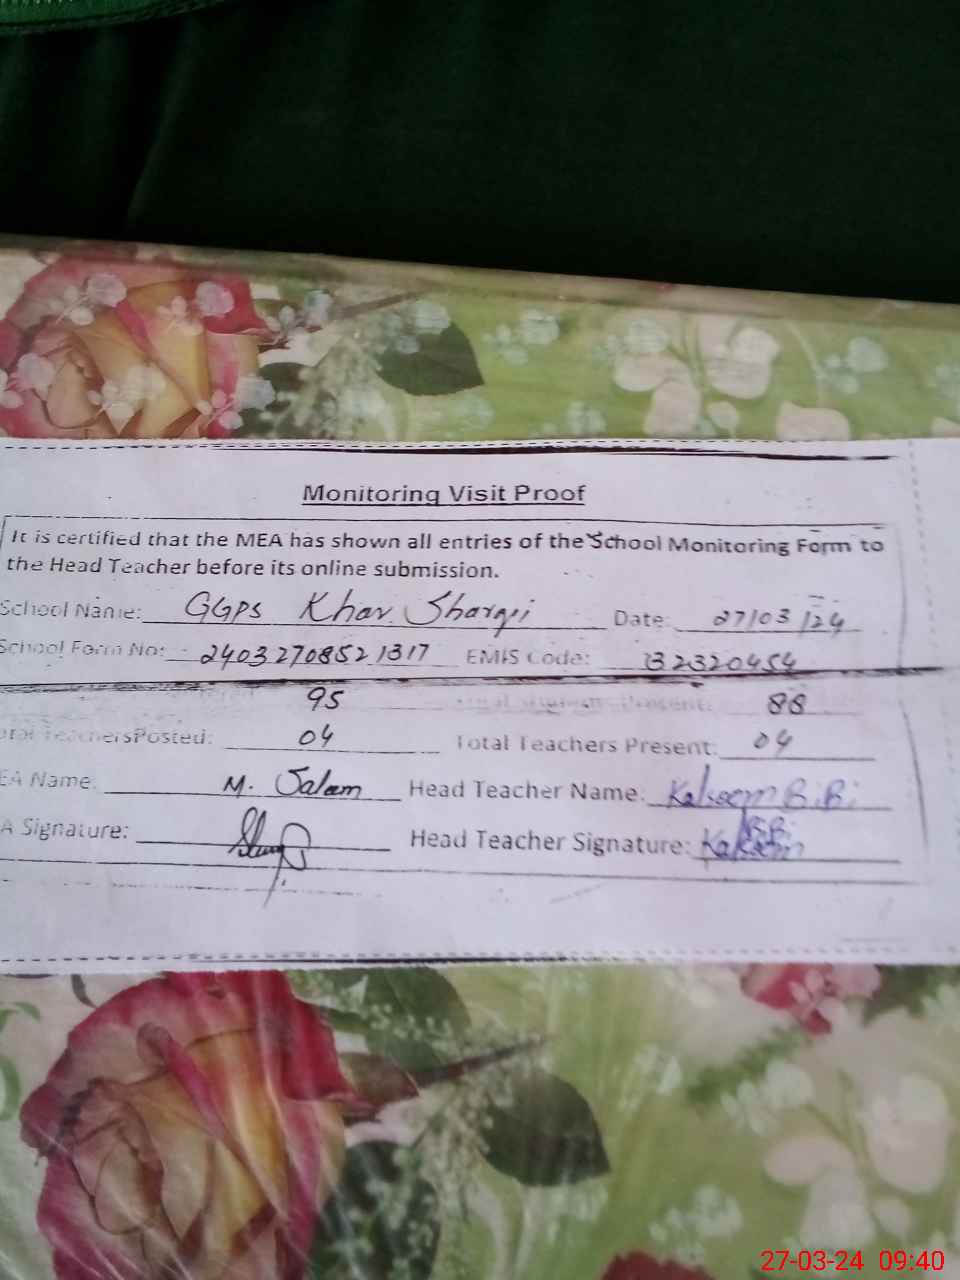 Monitoring Visit Proof
It is certified that the MEA has shown all entries of the School Monitoring Form to
the Head Teacher before its online submission.
School Name: GGPS Khar Sharqi Date: 27/03/24
School Form No: 2403270852 1317 EMIS Code: 32320454
95 Present: 88
Teachers Posted: 04 Total Teachers Present: 04
EA Name: M. Salam Head Teacher Name: Kalsoom BiBi
A Signature: Head Teacher Signature: Kalsoom BiBi
27-03-24 09:40